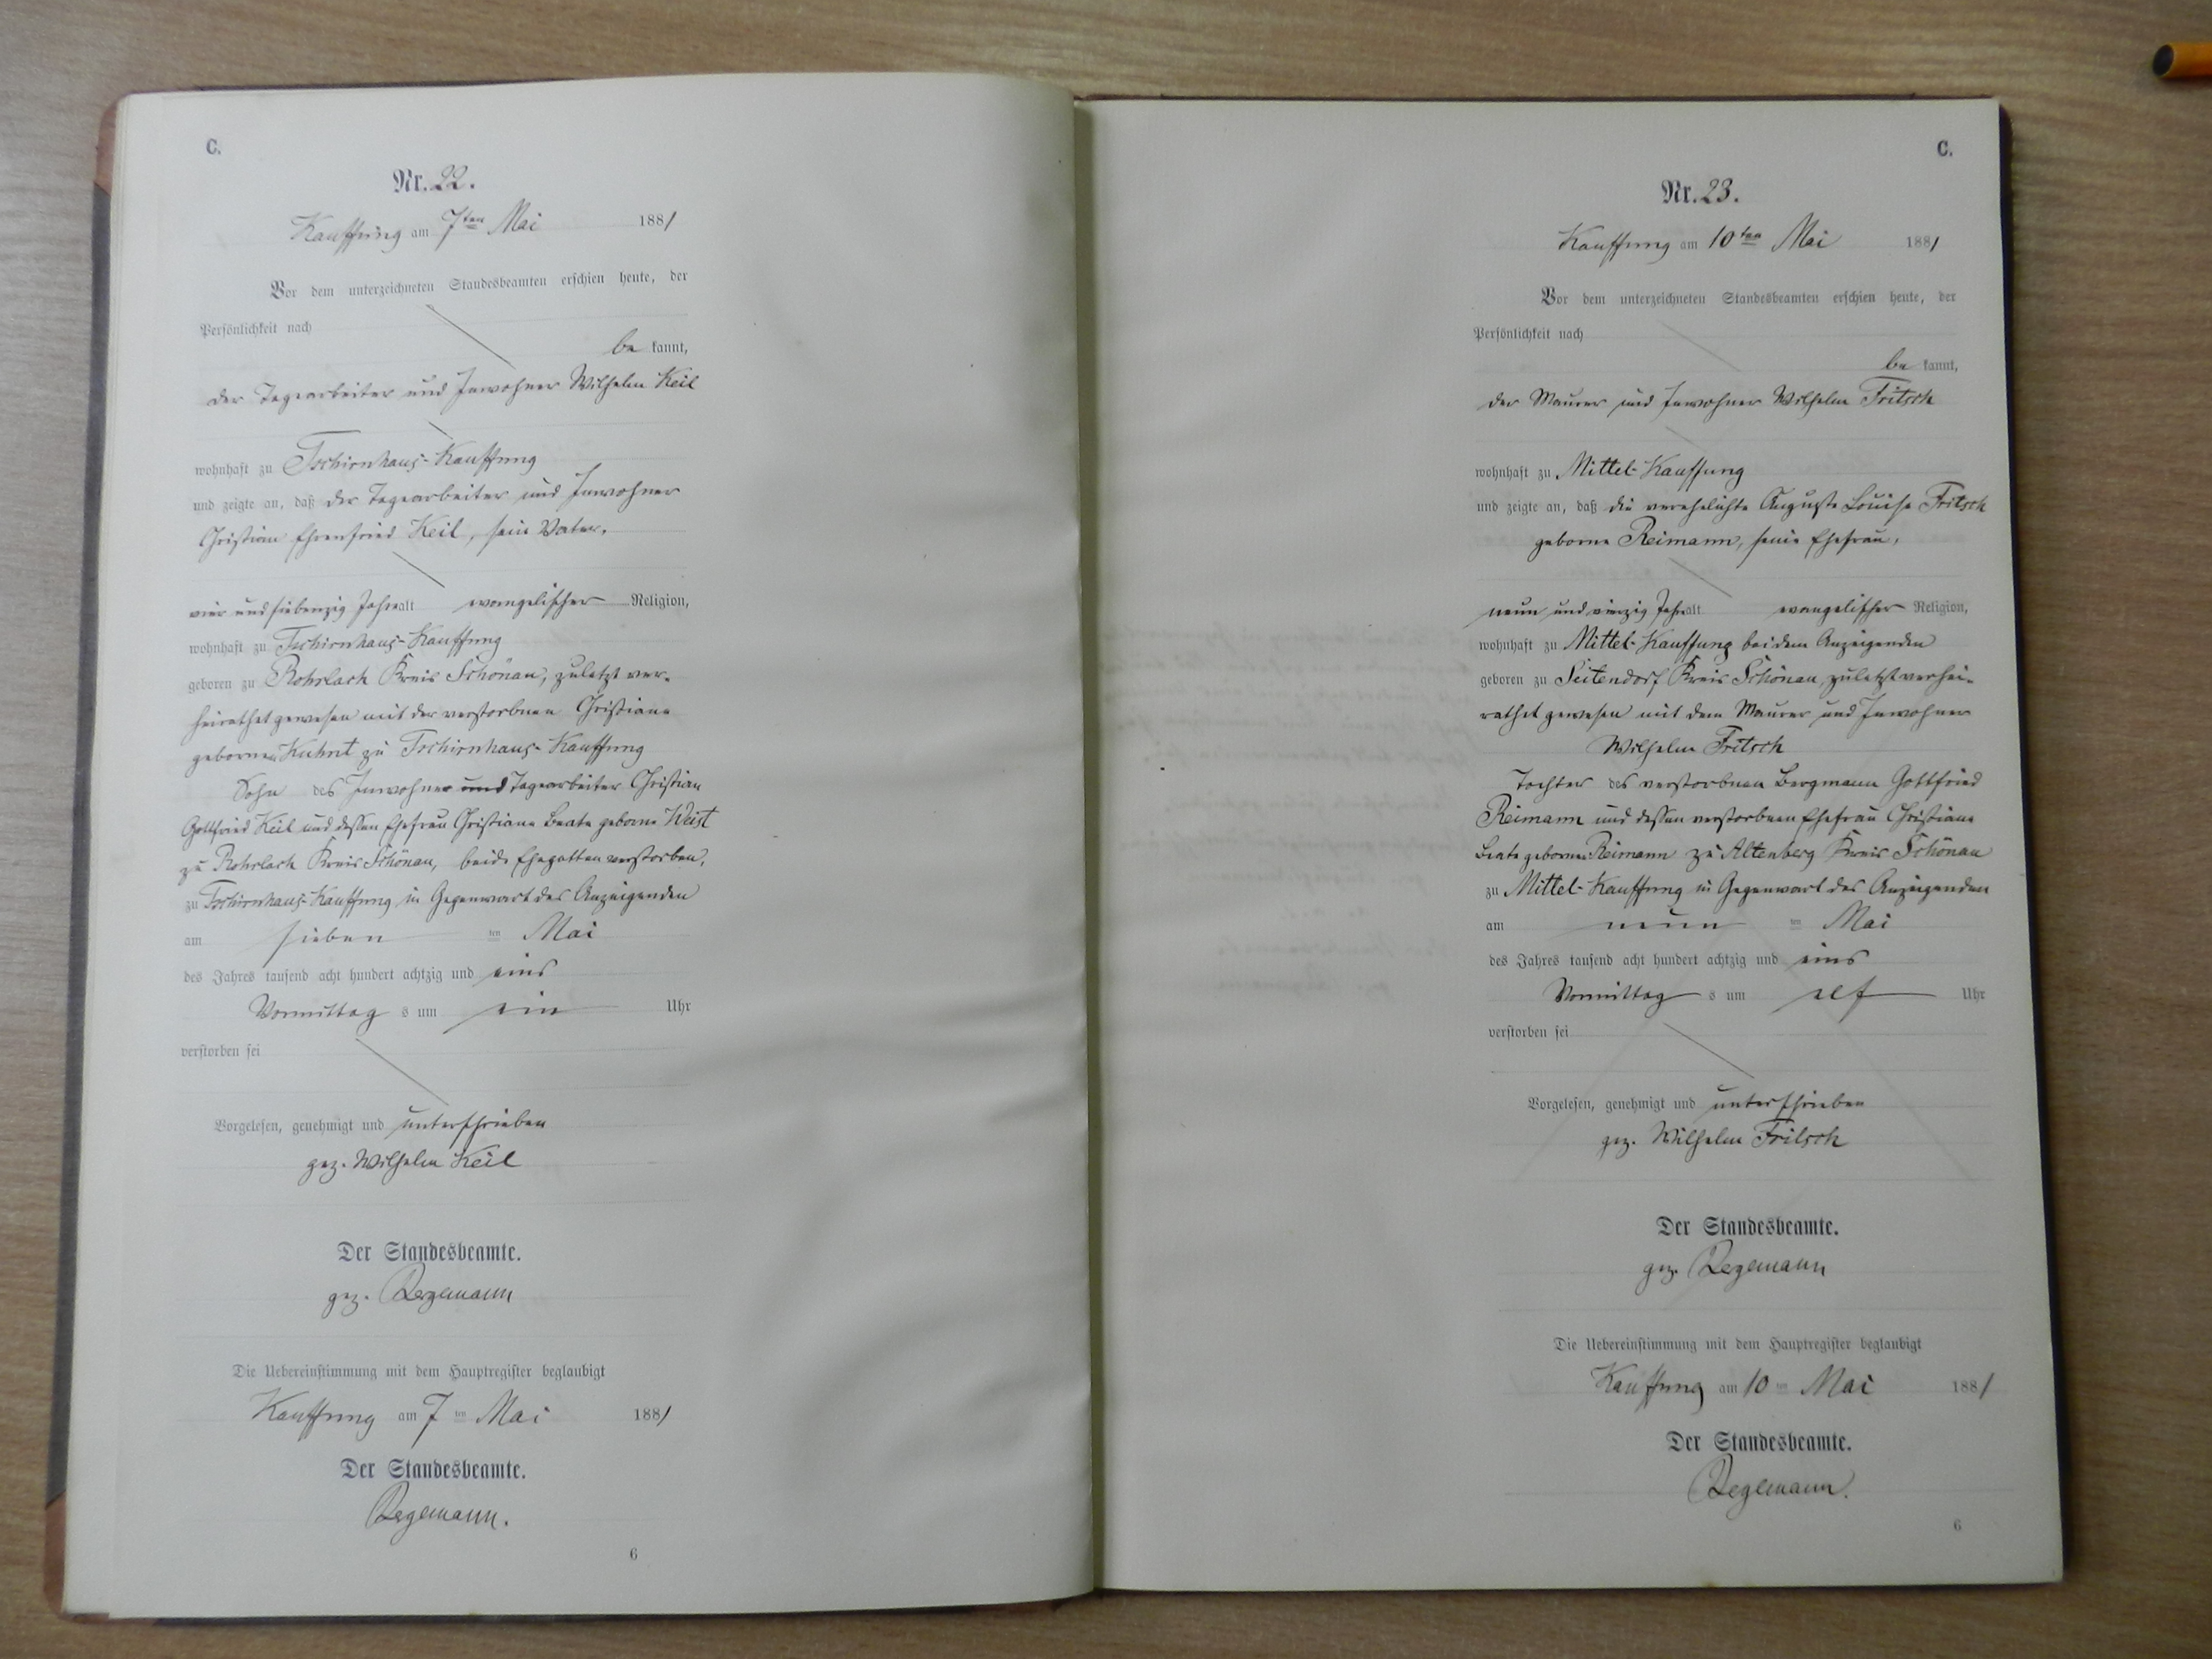 C.
Nr. 22.
Kauffung am 7ten Mai 1881
Vor dem unterzeichneten Standesbeamten erschien heute, der
Persönlichkeit nach
be kannt,
der Tagearbeiter und Inwohner Wilhelm Keil
wohnhaft zu Tschirnhaus-Kauffung
und zeigte an, daß der Tagearbeiter und Inwohner
Christian Ehrenfried Keil, sein Vater,
vier und siebenzig Jahre alt evangelischer Religion,
wohnhaft zu Tschirnhaus-Kauffung
geboren zu Rohrlach Kreis Schönau, zuletzt ver-
heirathet gewesen mit der verstorbnen Christiane
gebornen Kuhnt zu Tschirnhaus-Kauffung
Sohn des Inwohner und Tagearbeiter Christian
Gottfried Keil und dessen Ehefrau Christiane Beate geborne Weist
zu Rohrlach Kreis Schönau, beide Ehegatten verstorben,
zu Tschirnhaus-Kauffung in Gegenwart des Anzeigenden
am sieben ten Mai
des Jahres tausend acht hundert achtzig und eins
Vormittag s um ein Uhr
verstorben sei
Vorgelesen, genehmigt und unterschrieben
gez. Wilhelm Keil
Der Standesbeamte.
gez. Regemann
Die Uebereinstimmung mit dem Hauptregister beglaubigt
Kauffung am 7 ten Mai 1881
Der Standesbeamte.
Regemann.
6
C.
Nr. 23.
Kauffung am 10ten Mai 1881
Vor dem unterzeichneten Standesbeamten erschien heute, der
Persönlichkeit nach
be kannt,
der Maurer und Inwohner Wilhelm Fritsch
wohnhaft zu Mittel-Kauffung
und zeigte an, daß die verehelichte Auguste Louise Fritsch
geborne Reimann, seine Ehefrau,
neun und vierzig Jahre alt evangelischer Religion,
wohnhaft zu Mittel-Kauffung bei dem Anzeigenden
geboren zu Seitendorf Kreis Schönau, zuletzt verhei-
rathet gewesen mit dem Maurer und Inwohner
Wilhelm Fritsch
Tochter des verstorbnen Bergmann Gottfried
Reimann und dessen verstorbnen Ehefrau Christiane
Beate gebornen Reimann zu Altenberg Kreis Schönau
zu Mittel-Kauffung in Gegenwart des Anzeigenden
am neun ten Mai
des Jahres tausend acht hundert achtzig und eins
Vormittag s um elf Uhr
verstorben sei
Vorgelesen, genehmigt und unterschrieben
gez. Wilhelm Fritsch
Der Standesbeamte.
gez. Regemann
Die Uebereinstimmung mit dem Hauptregister beglaubigt
Kauffung am 10 ten Mai 1881
Der Standesbeamte.
Regemann.
6